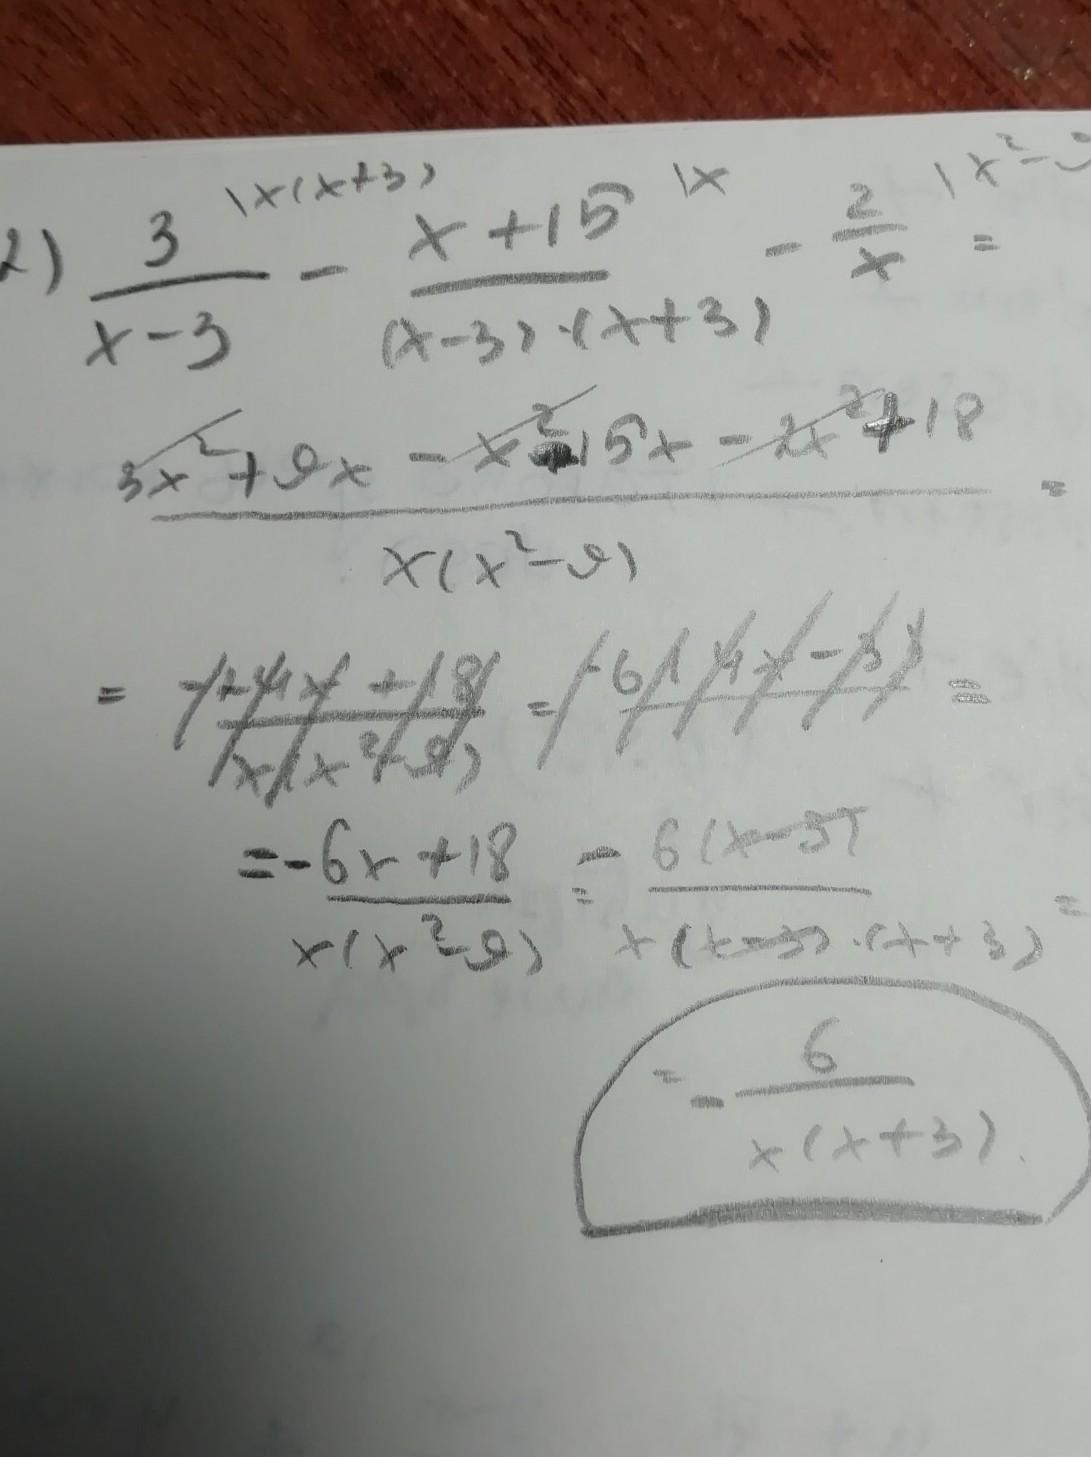 2) 3/(x-3) \x(x+3) - (x+15)/((x-3)·(x+3)) \x - 2/x \x²-9 =
(3x²+9x-x²-15x-2x²+18)/(x(x²-9)) =
= =
= (-6x+18)/(x(x²-9)) = - 6(x-3)/(x(x-3)·(x+3)) =
= - 6/(x(x+3)).